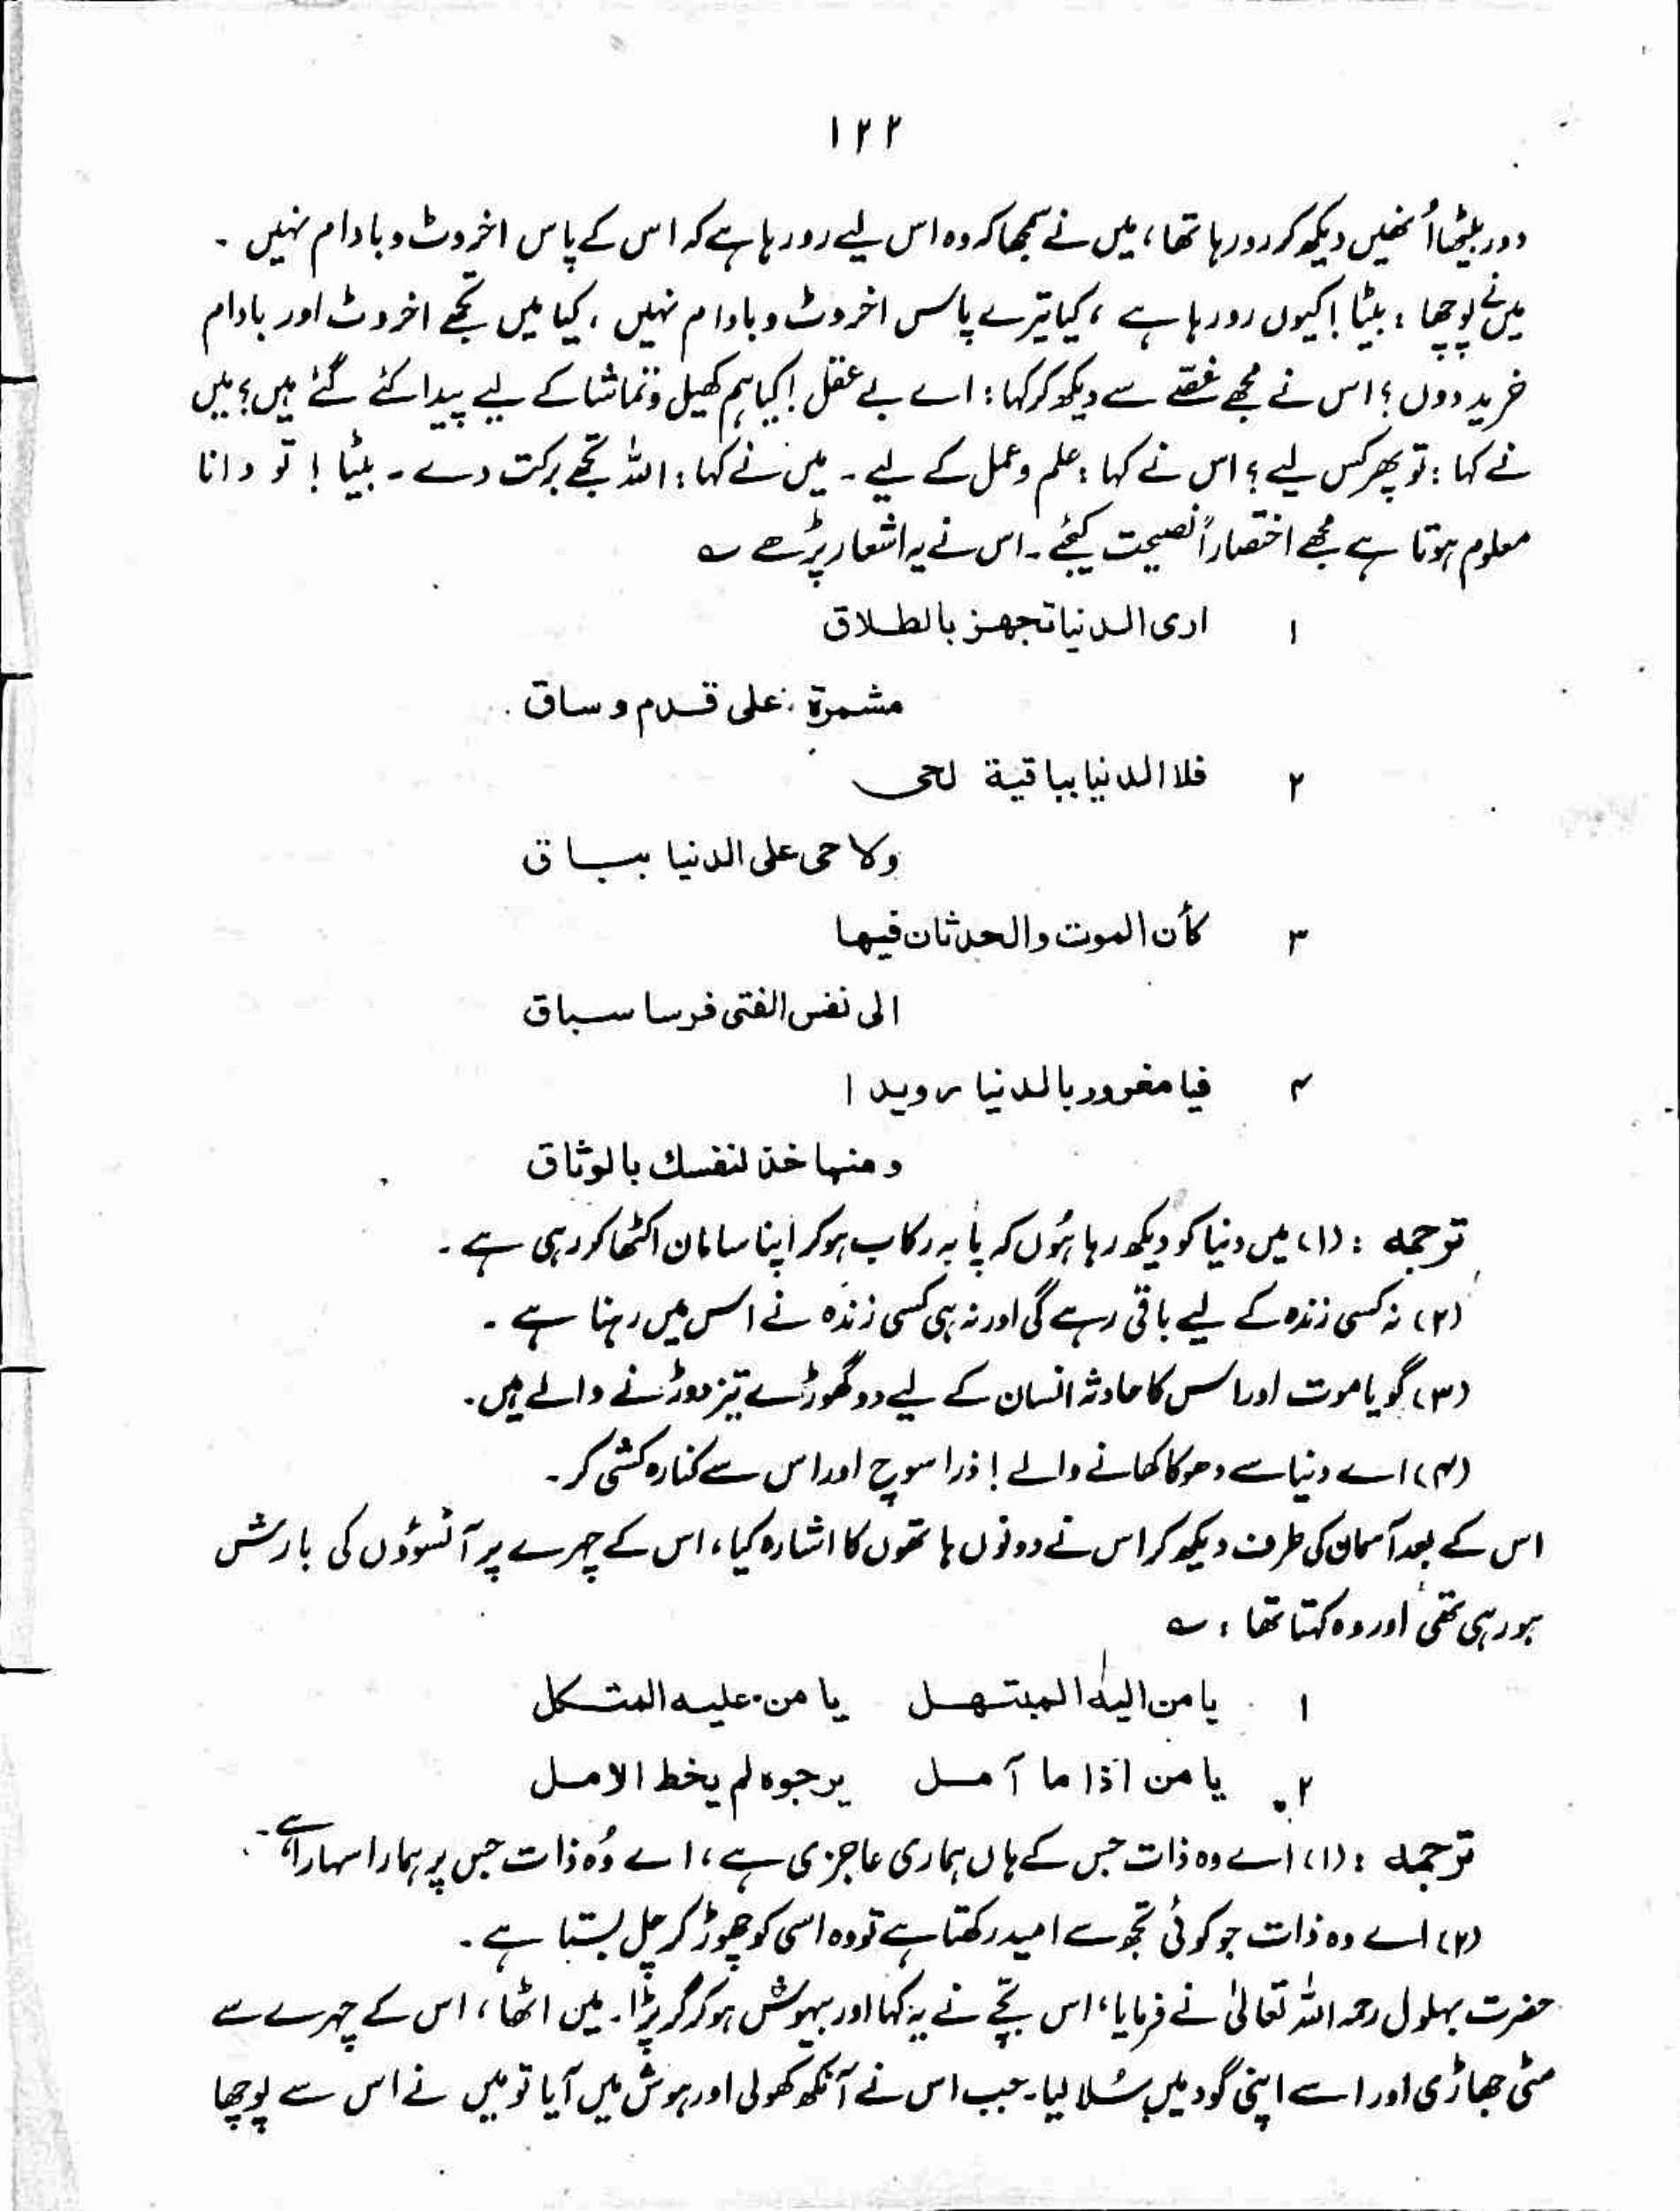 ۱۲۲
دور بیٹھا اُنھیں دیکھ کر رو رہا تھا، میں نے سمجھا کہ وہ اس لیے رو رہا ہے کہ اس کے پاس اخروٹ و بادام نہیں ۔
میں نے پوچھا : بیٹا ! کیوں رو رہا ہے ، کیا تیرے پاس اخروٹ و بادام نہیں ، کیا میں تجھے اخروٹ اور بادام
خرید دوں ؟ اس نے مجھے غصّے سے دیکھ کر کہا : اے بے عقل ! کیا ہم کھیل و تماشا کے لیے پیدا کئے گئے ہیں ؟ میں
نے کہا : تو پھر کس لیے ؟ اس نے کہا : علم و عمل کے لیے ۔ میں نے کہا : اللہ تجھے برکت دے ۔ بیٹا ! تو دانا
معلوم ہوتا ہے مجھے اختصاراً نصیحت کیجئے ۔ اس نے یہ اشعار پڑھے ؎
۱ ارى الدنيا تجهز بالطلاق
مشمرة على قدم وساق
۲ فلا الدنيا بباقية لحى
ولا حى على الدنيا بباق
۳ كأن الموت والحدثان فيها
الى نفس الفتى فرسا سباق
۴ فيا مغرور بالدنيا رويدا
ومنها خذ لنفسك بالوثاق
ترجمہ : (۱) میں دنیا کو دیکھ رہا ہُوں کہ پا بہ رکاب ہو کر اپنا سامان اکٹھا کر رہی ہے ۔
(۲) نہ کسی زندہ کے لیے باقی رہے گی اور نہ ہی کسی زندہ نے اس میں رہنا ہے ۔
(۳) گویا موت اور اس کا حادثہ انسان کے لیے دو گھوڑے تیز دوڑنے والے ہیں ۔
(۴) اے دنیا سے دھوکا کھانے والے ! ذرا سوچ اور اس سے کنارہ کشی کر ۔
اس کے بعد آسمان کی طرف دیکھ کر اس نے دونوں ہاتھوں کا اشارہ کیا ، اس کے چہرے پر آنسوؤں کی بارش
ہو رہی تھی اور وہ کہتا تھا : ؎
۱ يا من اليه المبتهل يا من عليه المتكل
۲ يا من اذا ما آمل يرجوه لم يخط الامل
ترجمہ : (۱) اے وہ ذات جس کے ہاں ہماری عاجزی ہے ، اے وُہ ذات جس پر ہمارا سہارا ہے ۔
(۲) اے وہ ذات جو کوئی تجھ سے امید رکھتا ہے تو وہ اسی کو چھوڑ کر چل بستا ہے ۔
حضرت بہلول رحمہ اللہ تعالیٰ نے فرمایا ، اس بچّے نے یہ کہا اور بیہوش ہو کر گر پڑا ۔ میں اٹھا ، اس کے چہرے سے
مٹی جھاڑی اور اسے اپنی گود میں سُلا لیا ۔ جب اس نے آنکھ کھولی اور ہوش میں آیا تو میں نے اس سے پوچھا